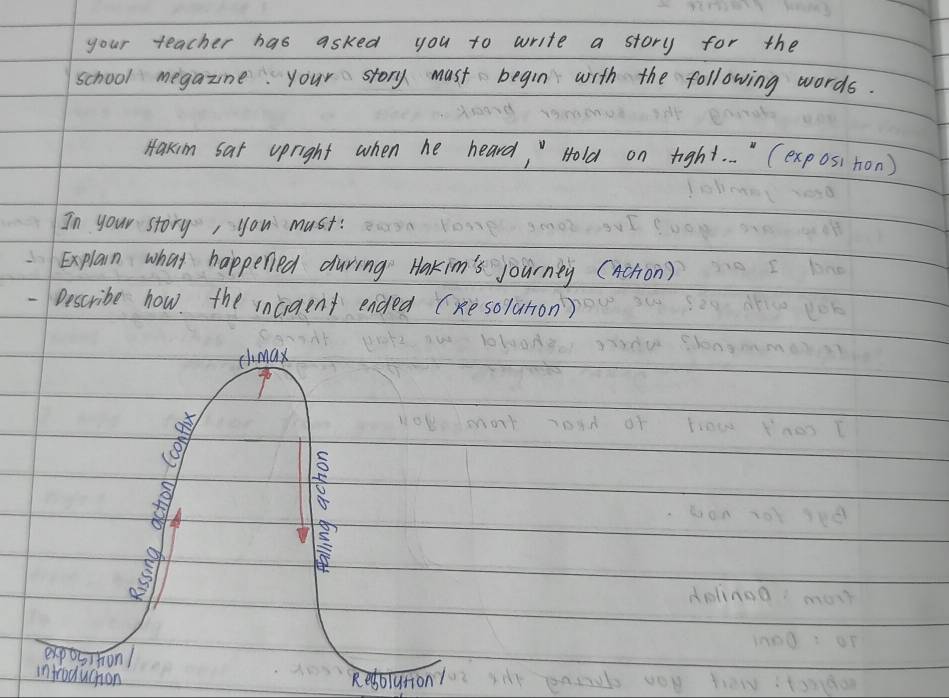 your teacher has asked you to write a story for the
school megazine. your story must begin with the following words.
Hakim sat upright when he heard, "Hold on tight..." (exposition)
In your story, you must:
- Explain what happened during Hakim's journey (Action)
- Describe how the incident ended (Resolution)
climax
Rissing action (conflix
Falling action
exposition/
introduction
Resolution/